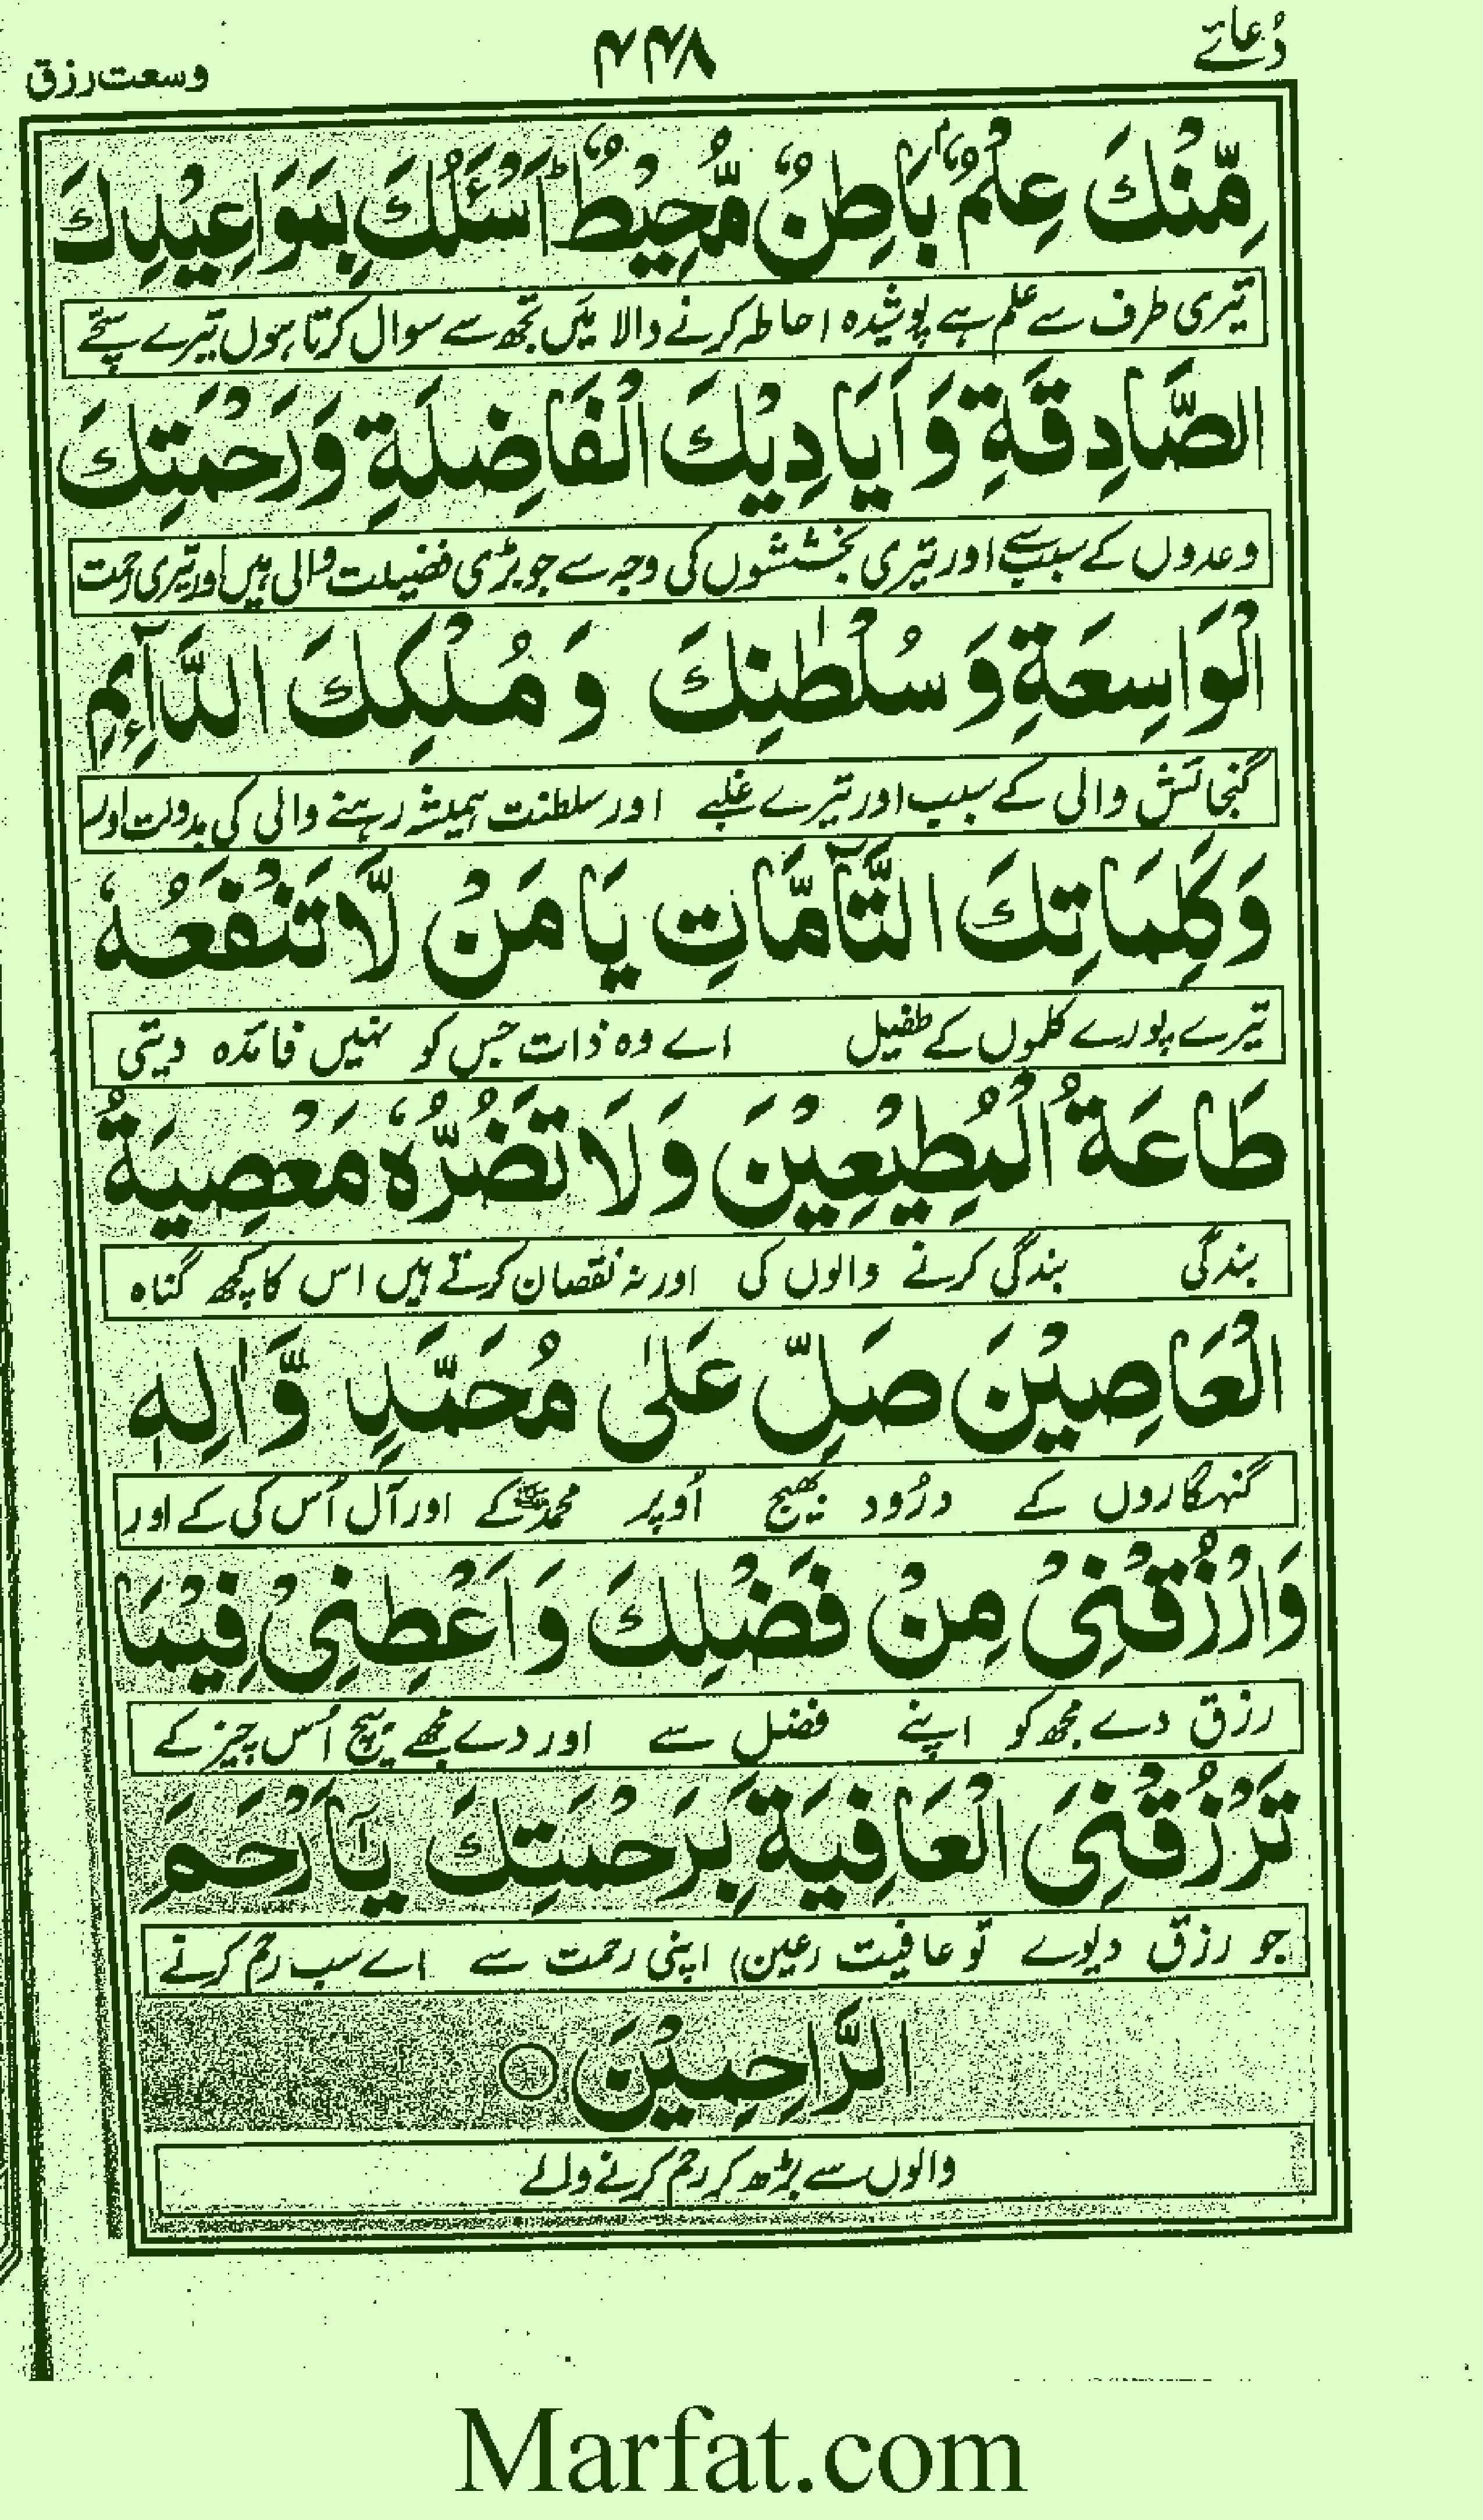 دُعائے ۴۴۸ وسعت رزق
مِّنْكَ عِلْمٌ بَاطِنٌ مُّحِيْطٌ اَسْئَلُكَ بِمَوَاعِيْدِكَ
تیری طرف سے علم ہے پوشیدہ احاطہ کرنے والا میں تجھ سے سوال کرتا ہوں تیرے سچّے
الصَّادِقَةِ وَاَيَادِيْكَ الْفَاضِلَةِ وَرَحْمَتِكَ
وعدوں کے سبب سے اور تیری بخششوں کی وجہ سے جو بڑی فضیلت والی ہیں اور تیری رحمت
الْوَاسِعَةِ وَسُلْطٰنِكَ وَمُلْكِكَ الدَّآئِمِ
گنجائش والی کے سبب اور تیرے غلبے اور سلطنت ہمیشہ رہنے والی کی بدولت اور
وَكَلِمَاتِكَ التَّآمَّاتِ يَا مَنْ لَّا تَنْفَعُهٗ
تیرے پورے کلموں کے طفیل اے وہ ذات جس کو نہیں فائدہ دیتی
طَاعَةُ الْمُطِيْعِيْنَ وَلَا تَضُرُّهٗ مَعْصِيَةُ
بندگی بندگی کرنے والوں کی اور نہ نقصان کرتے ہیں اس کا کچھ گناہ
الْعَاصِيْنَ صَلِّ عَلٰى مُحَمَّدٍ وَّاٰلِهٖ
گنہگاروں کے درُود بھیج اُوپر محمدﷺ کے اور آل اُس کی کے اور
وَارْزُقْنِیْ مِنْ فَضْلِكَ وَاَعْطِنِیْ فِيْمَا
رزق دے مجھ کو اپنے فضل سے اور دے مجھے بیچ اُس چیز کے
تَرْزُقُنِیَ الْعَافِيَةَ بِرَحْمَتِكَ يَآاَرْحَمَ
جو رزق دیوے تو عافیت (عین) اپنی رحمت سے اے سب رحم کرنے
الرَّاحِمِيْنَ ○
والوں سے بڑھ کر رحم کرنے والے
Marfat.com